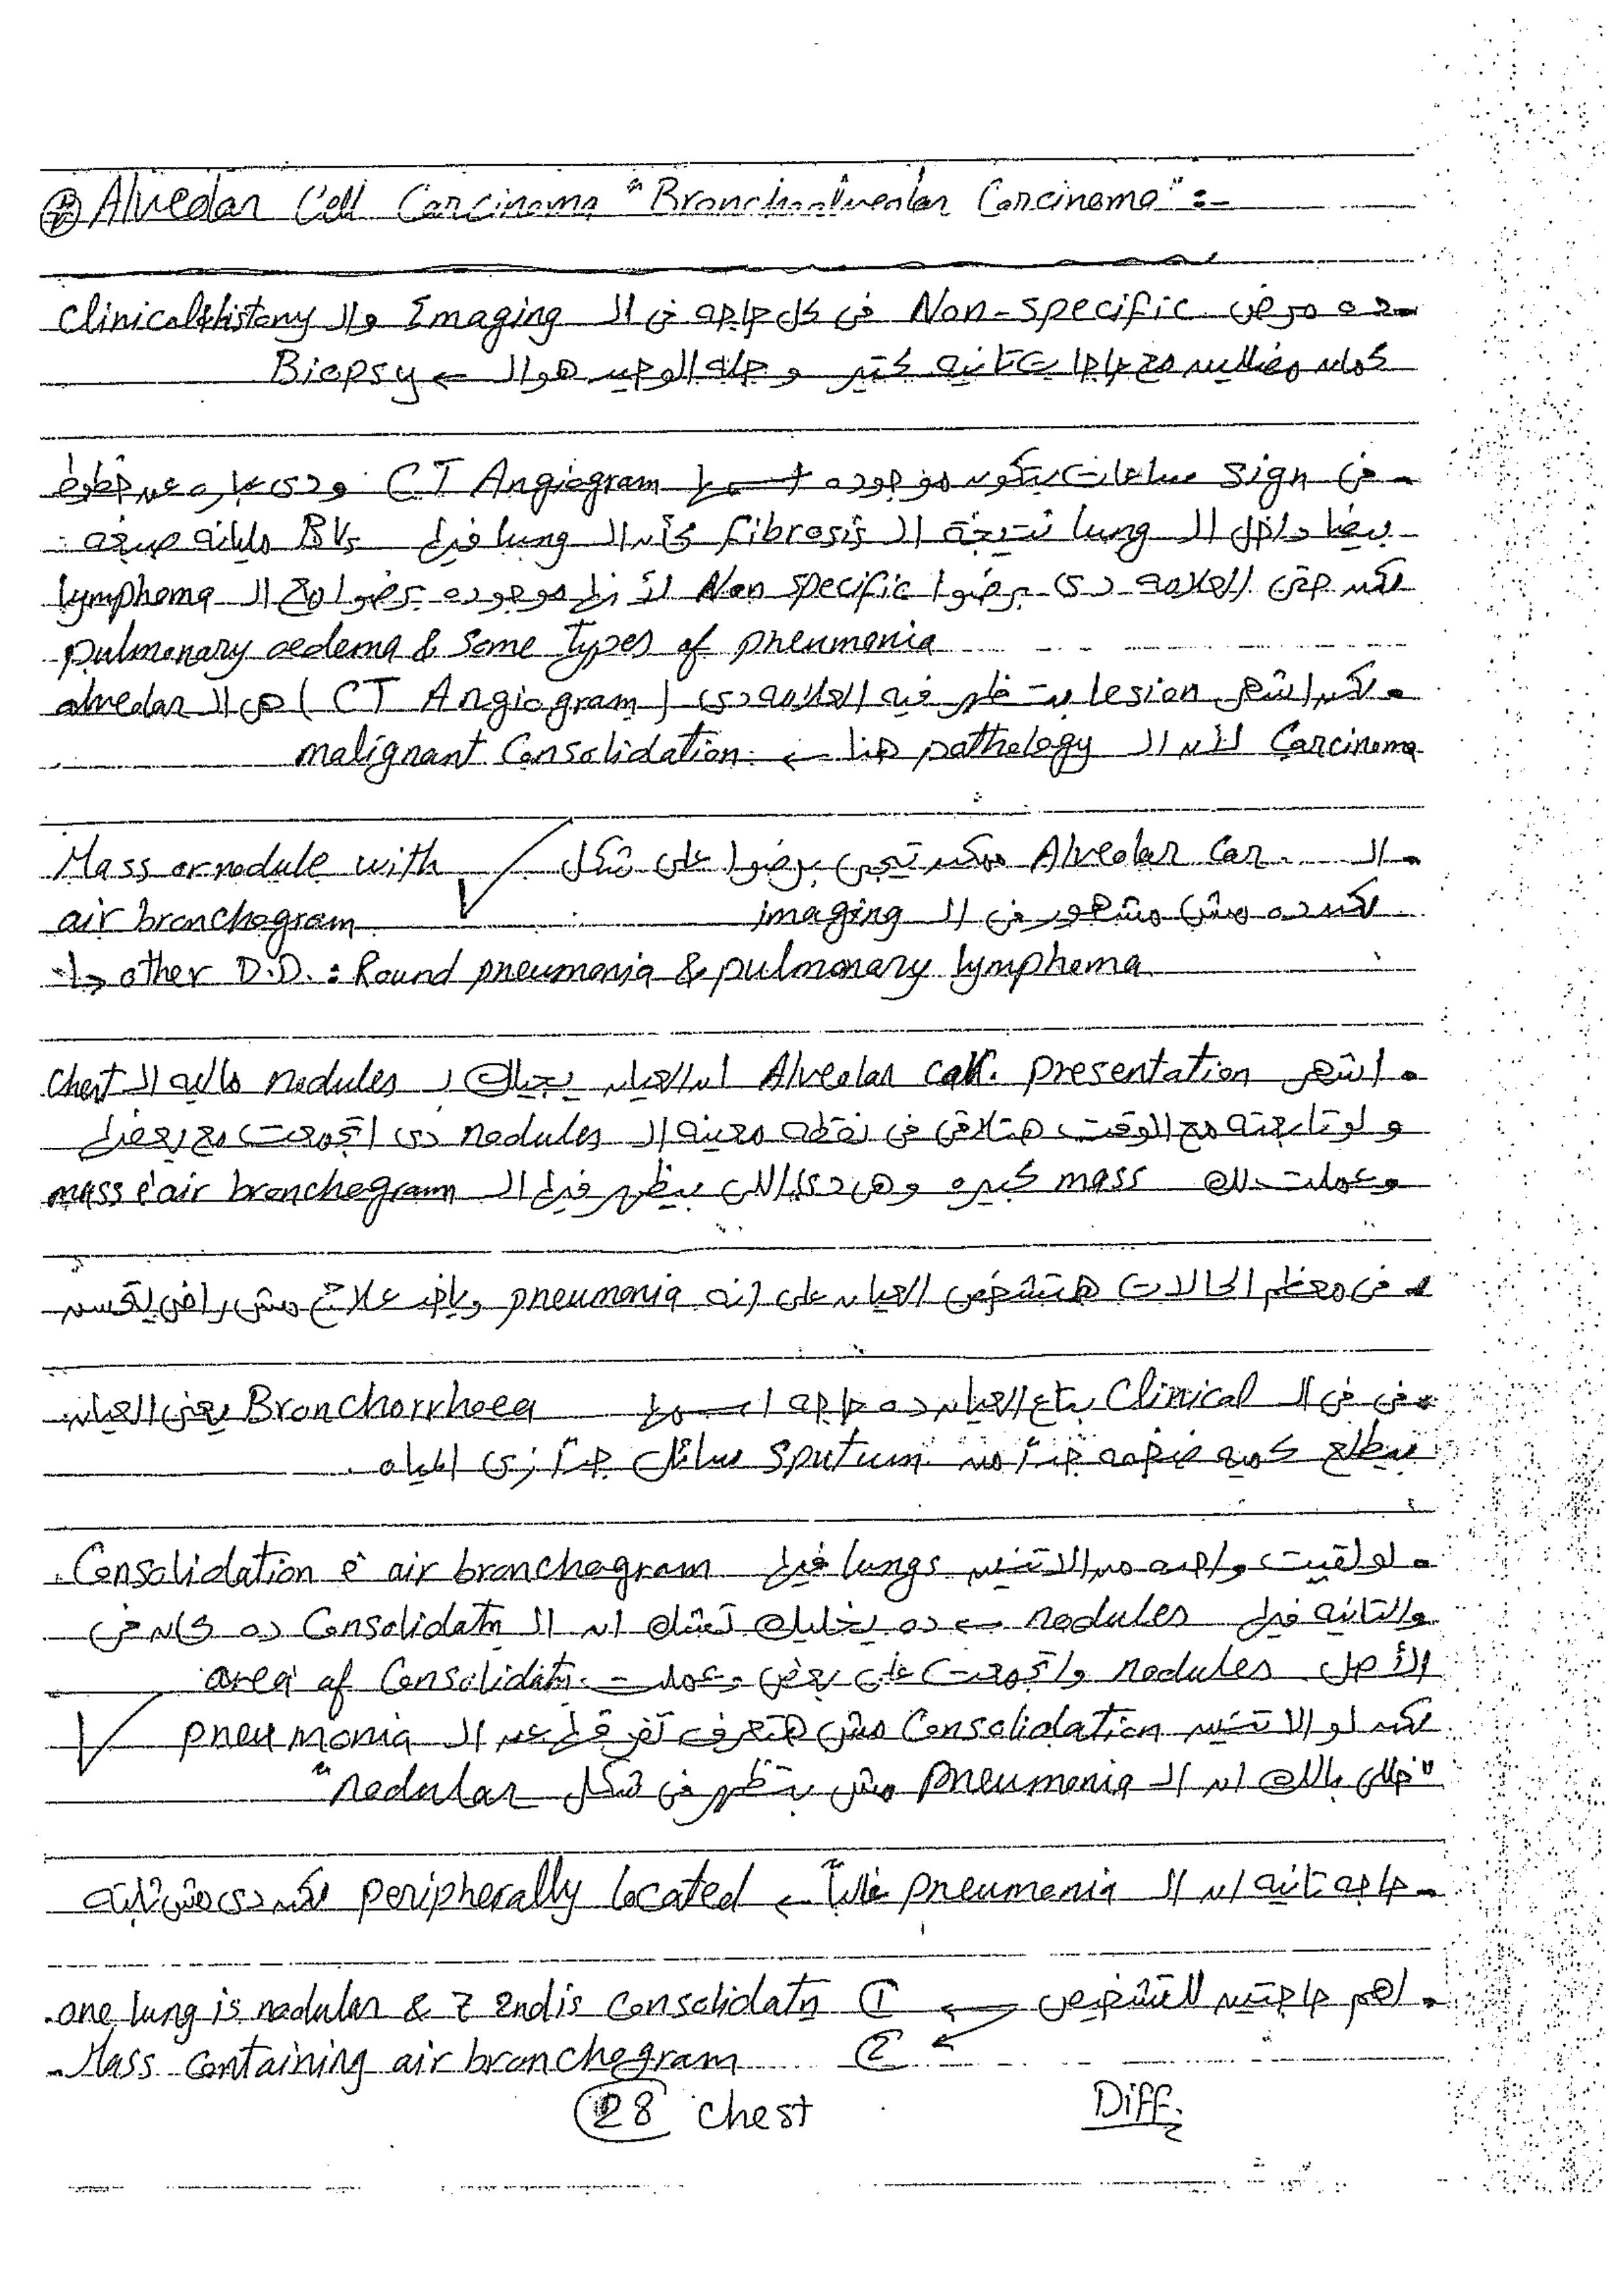 Alveolar Cell Carcinoma "Bronchoalveolar Carcinoma" :-
- ده مرض Non-specific فى كل حاجه فى الـ Imaging والـ Clinical History
كمان مضلليه مع حاجات تانيه كتير و حله الوحيد هو الـ ← Biopsy
- فى sign ساعات بتكون موجوده اسمها CT Angiogram ودى عباره عن خطوط
بيضا داخل الـ lung نتيجة الـ fibrosis كأن الـ lung فيها BVs مليانه صبغه
لكن حتى العلامه دى برضوا Non specific لأنها موجوده برضوا مع الـ lymphoma
pulmonary oedema & some types of pneumonia
- لكن اشهر lesion بتظهر فيه العلامه دى (CT Angiogram) هى الـ alveolar
Carcinoma لأن الـ pathology هنا ← malignant Consolidation
- الـ Alveolar Car. ممكن تيجى برضوا على شكل Mass or nodule with
air bronchogram لكن ده مش مشهور فى الـ imaging
↳ other D.D. : Round pneumonia & pulmonary lymphoma
- اشهر presentation Alveolar car. ان العيان يجيلك بـ nodules ماليه الـ Chest
و لو تابعته مع الوقت هتلاقى فى نقطه معينه الـ nodules دى اتجمعت مع بعضها
وعملت لك mass كبيره وهى دى اللى بيظهر فيها الـ mass c̄ air bronchogram
- فى معظم الحالات هتشخص العيان على انه pneumonia وياخد علاج مش راضى يتحسن
- فى فى الـ Clinical بتاع العيان ده حاجه اسمها Bronchorrhoea يعنى العيان
بيطلع كميه ضخمه جداً من Sputum سائل جداً زى المياه.
- لو لقيت واحده من الاتنين lungs فيها Consolidation c̄ air bronchogram.
والتانيه فيها nodules ← ده يخليك تشك ان الـ Consolidatn ده كان فى
الأصل nodules واتجمعت على بعض وعملت area of Consolidatn.
لكن لو الاتنين Consolidation مش هتعرف تفرقها عن الـ pneumonia
"خلى بالك ان الـ pneumonia مش بتظهر فى شكل nodular"
- حاجه تانيه ان الـ pneumonia غالباً ← peripherally located لكن دى مش ثابته
- اهم حاجتين للتشخيص ← ① one lung is nodular & z 2nd is consolidatn
② Mass containing air bronchogram
28 chest
Diff.